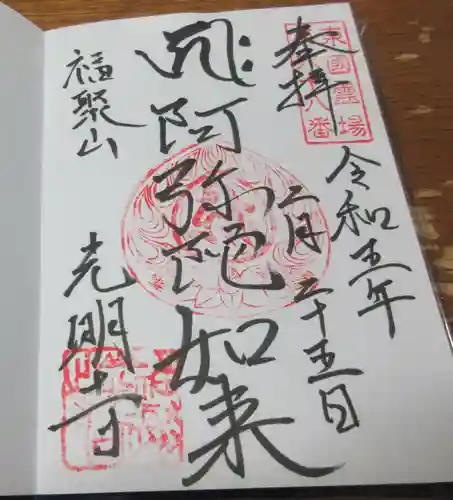 奉拝
東国霊場
八番
令和五年
二月二十五日
阿弥陀如来
福聚山
光明寺